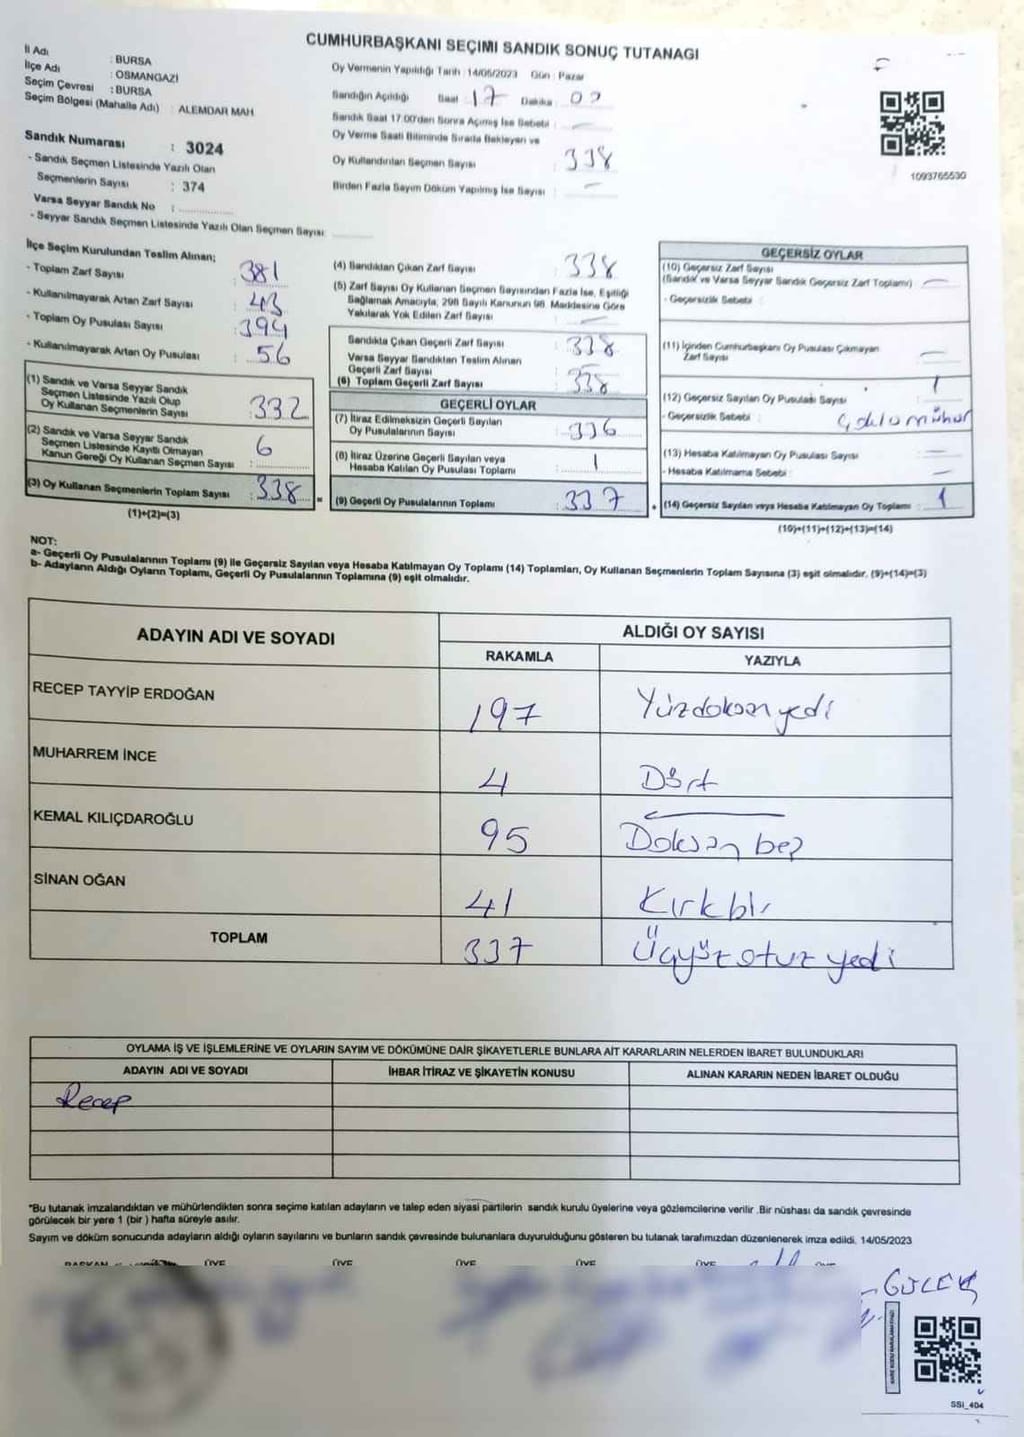 CUMHURBAŞKANI SEÇİMİ SANDIK SONUÇ TUTANAĞI
İl Adı : BURSA
İlçe Adı : OSMANGAZİ
Seçim Çevresi : BURSA
Seçim Bölgesi (Mahalle Adı) : ALEMDAR MAH
Sandık Numarası : 3024
- Sandık Seçmen Listesinde Yazılı Olan
Seçmenlerin Sayısı : 374
Varsa Seyyar Sandık No :
- Seyyar Sandık Seçmen Listesinde Yazılı Olan Seçmen Sayısı:
Oy Vermenin Yapıldığı Tarih : 14/05/2023 Gün : Pazar
Sandığın Açıldığı Saat : 17 Dakika :
Sandık Saat 17:00'den Sonra Açımış İse Sebebi : -
Oy Verme Saati Bitiminde Sırada Bekleyen ve
Oy Kullandırılan Seçmen Sayısı : 338
Birden Fazla Sayım Döküm Yapılmış İse Sayısı : -
1093765530
İlçe Seçim Kurulundan Teslim Alınan;
- Toplam Zarf Sayısı : 381
- Kullanılmayarak Artan Zarf Sayısı : 43
- Toplam Oy Pusulası Sayısı : 394
- Kullanılmayarak Artan Oy Pusulası : 56
(1) Sandık ve Varsa Seyyar Sandık
Seçmen Listesinde Yazılı Olup
Oy Kullanan Seçmenlerin Sayısı : 332
(2) Sandık ve Varsa Seyyar Sandık
Seçmen Listesinde Kayıtlı Olmayan
Kanun Gereği Oy Kullanan Seçmen Sayısı : 6
(3) Oy Kullanan Seçmenlerin Toplam Sayısı : 338
(1)+(2)=(3)
(4) Sandıktan Çıkan Zarf Sayısı : 338
(5) Zarf Sayısı Oy Kullanan Seçmen Sayısından Fazla İse, Eşitliği
Sağlamak Amacıyla, 298 Sayılı Kanunun 98. Maddesine Göre
Yakılarak Yok Edilen Zarf Sayısı : -
Sandıkta Çıkan Geçerli Zarf Sayısı : 338
Varsa Seyyar Sandıktan Teslim Alınan
Geçerli Zarf Sayısı : -
(6) Toplam Geçerli Zarf Sayısı : 338
GEÇERLİ OYLAR
(7) İtiraz Edilmeksizin Geçerli Sayılan
Oy Pusulalarının Sayısı : 336
(8) İtiraz Üzerine Geçerli Sayılan veya
Hesaba Katılan Oy Pusulası Toplamı : 1
(9) Geçerli Oy Pusulalarının Toplamı : 337
GEÇERSİZ OYLAR
(10) Geçersiz Zarf Sayısı
(Sandık ve Varsa Seyyar Sandık Geçersiz Zarf Toplamı) : -
- Geçersizlik Sebebi :
(11) İçinden Cumhurbaşkanı Oy Pusulası Çıkmayan
Zarf Sayısı : -
(12) Geçersiz Sayılan Oy Pusulası Sayısı : 1
- Geçersizlik Sebebi : mühür
(13) Hesaba Katılmayan Oy Pusulası Sayısı : -
- Hesaba Katılmama Sebebi : -
(14) Geçersiz Sayılan veya Hesaba Katılmayan Oy Toplamı : 1
(10)+(11)+(12)+(13)=(14)
NOT:
a- Geçerli Oy Pusulalarının Toplamı (9) ile Geçersiz Sayılan veya Hesaba Katılmayan Oy Toplamı (14) Toplamları, Oy Kullanan Seçmenlerin Toplam Sayısına (3) eşit olmalıdır. (9)+(14)=(3)
b- Adayların Aldığı Oyların Toplamı, Geçerli Oy Pusulalarının Toplamına (9) eşit olmalıdır.
ADAYIN ADI VE SOYADI ALDIĞI OY SAYISI
RAKAMLA YAZIYLA
RECEP TAYYİP ERDOĞAN 197 Yüzdoksan yedi
MUHARREM İNCE 4 Dört
KEMAL KILIÇDAROĞLU 95 Doksan beş
SİNAN OĞAN 41 Kırkbir
TOPLAM 337 Üçyüz otuz yedi
OYLAMA İŞ VE İŞLEMLERİNE VE OYLARIN SAYIM VE DÖKÜMÜNE DAİR ŞİKAYETLERLE BUNLARA AİT KARARLARIN NELERDEN İBARET BULUNDUKLARI
ADAYIN ADI VE SOYADI İHBAR İTİRAZ VE ŞİKAYETİN KONUSU ALINAN KARARIN NEDEN İBARET OLDUĞU
Recep
*Bu tutanak imzalandıktan ve mühürlendikten sonra seçime katılan adayların ve talep eden siyasi partilerin sandık kurulu üyelerine veya gözlemcilerine verilir .Bir nüshası da sandık çevresinde
görülecek bir yere 1 (bir ) hafta süreyle asılır.
Sayım ve döküm sonucunda adayların aldığı oyların sayılarını ve bunların sandık çevresinde bulunanlara duyurulduğunu gösteren bu tutanak tarafımızdan düzenlenerek imza edildi. 14/05/2023
BAŞKAN ÜYE ÜYE ÜYE ÜYE ÜYE ÜYE
SSİ_404